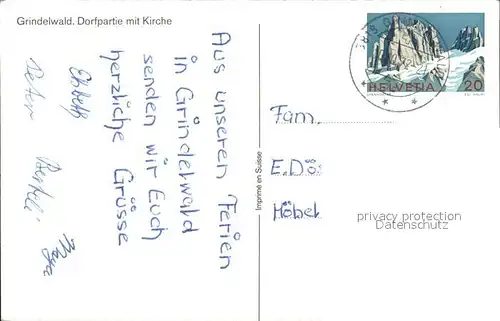 Grindelwald. Dorfpartie mit Kirche
Aus unseren Ferien
in Grindelwald
senden wir Euch
herzliche Grüsse
Peter
Maya
Imprimé en Suisse
HELVETIA 20
Fam.
E.Dö
Höbel
privacy protection
Datenschutz